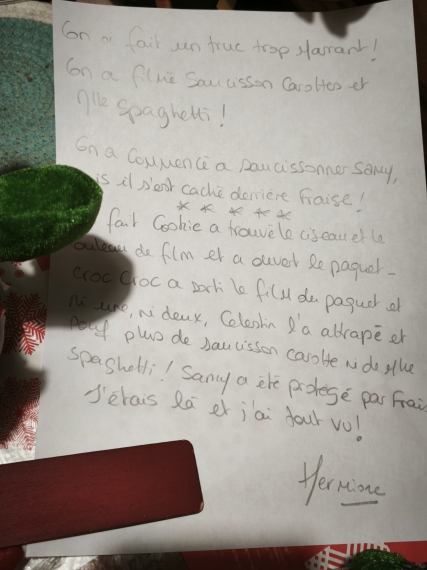 On a fait un truc trop marrant!
On a filmé Saucisson Carottes et
Mlle Spaghetti!
On a commencé a saucissonner Samy,
is il s'est caché derrière Fraise!
* * * * *
fait Cookie a trouvé le ciseau et le
de film et a ouvert le paquet -
Croc Croc a sorti le film du paquet et
ni une, ni deux, Celestin l'a attrapé et
pouf plus de saucisson carotte ni de Mlle
spaghetti! Samy a été protégé par Frais
J'étais là et j'ai tout vu!
Hermione